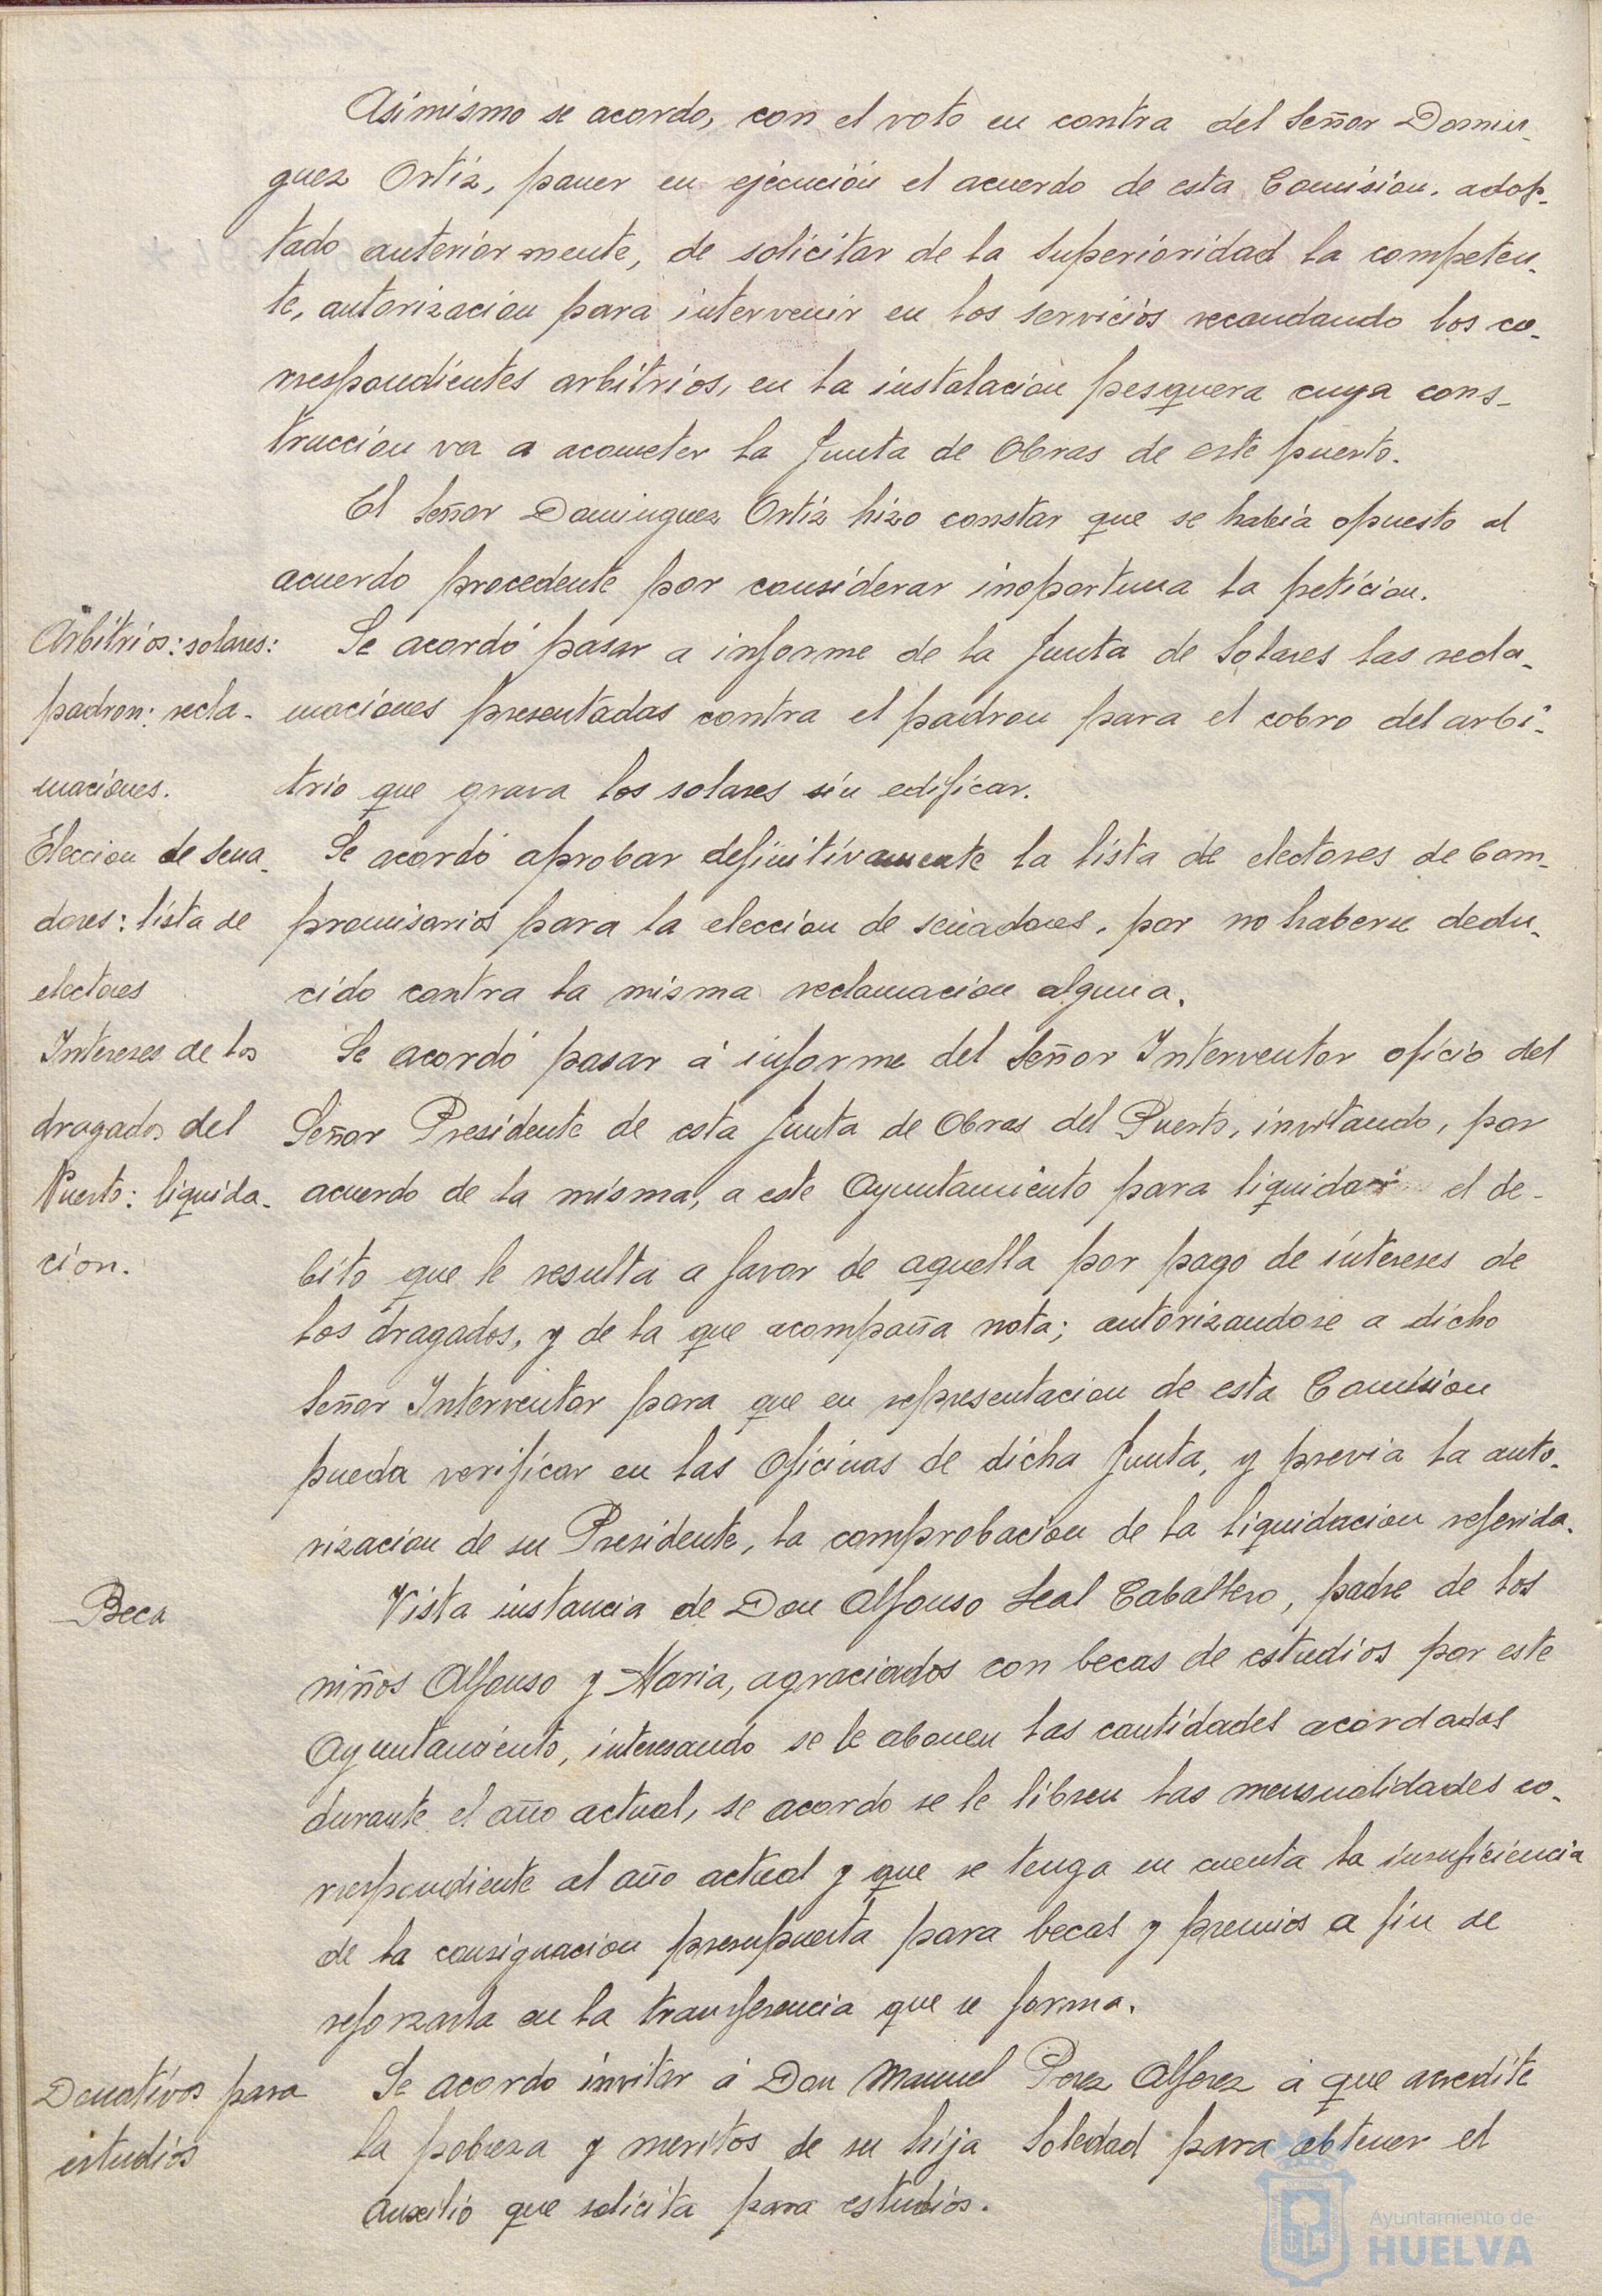 Asimismo se acordo, con el voto en contra del Señor Domin-
guez Ortiz, poner en ejecución el acuerdo de esta Comision, adop-
tado anteriormente, de solicitar de la Superioridad la competen-
te, autorizacion para intervenir en los servicios recaudando los co-
rrespondientes arbitrios, en la instalación pesquera cuya cons-
truccion va a acometer la Junta de Obras de este puerto.
El Señor Dominguez Ortiz hizo constar que se habia opuesto al
acuerdo procedente por considerar inoportuna la peticion.
Arbitrios: solares:
padron: recla-
maciones.
Se acordó pasar a informe de la Junta de Solares las recla-
maciones presentadas contra el padron para el cobro del arbi-
trio que grava los solares sin edificar.
Eleccion de sena-
dores: lista de
electores
Se acordó aprobar definitivamente la lista de electores de Com-
promisarios para la eleccion de senadores, por no haberse dedu-
cido contra la misma reclamacion alguna.
Intereses de los
dragados del
Puerto: liquida-
cion.
Se acordó pasar á informe del Señor Interventor oficio del
Señor Presidente de esta Junta de Obras del Puerto, invitando, por
acuerdo de la misma, a este Ayuntamiento para liquidar el de-
bito que le resulta a favor de aquella por pago de intereses de
los dragados, y de la que acompaña nota; autorizandose a dicho
Señor Interventor para que en representacion de esta Comision
pueda verificar en las Oficinas de dicha Junta, y previa la auto-
rizacion de su Presidente, la comprobacion de la liquidacion referida.
Beca
Vista instancia de Don Alfonso Leal Caballero, padre de los
niños Alfonso y Maria, agraciados con becas de estudios por este
Ayuntamiento, interesando se le abonen las cantidades acordadas
durante el año actual, se acordo se le libren las mensualidades co-
rrespondiente al año actual y que se tenga en cuenta la insuficiencia
de la consignacion presupuesta para becas y premios a fin de
reforzarla en la transferencia que se forma.
Donativos para
estudios
Se acordo invitar á Don Manuel Perez Alferez á que acredite
la pobreza y meritos de su hija Soledad para obtener el
auxilio que solicita para estudios.
Ayuntamiento de
HUELVA